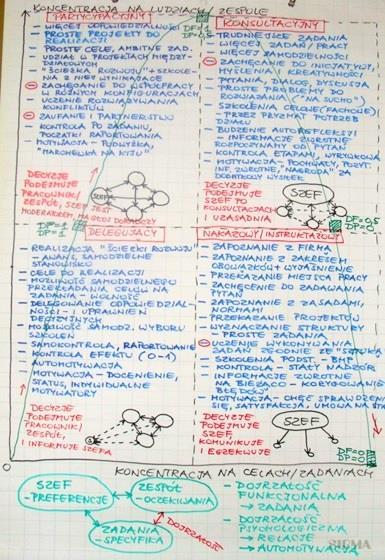 KONCENTRACJA NA LUDZIACH / ZESPOLE
PARTYCYPACYJNY
- WIĘCEJ ODPOWIEDZIALNOŚCI
- PROSTE PROJEKTY DO REALIZACJI
- PROSTE CELE, AMBITNE ZAD.
- UDZIAŁ W PROJEKTACH MIĘDZY
DZIAŁOWYCH
- "ŚCIEŻKA ROZWOJU" + SZKOLE-
NIA Z NIEJ WYNIKAJĄCE
- ZACHĘCANIE DO WSPÓŁPRACY
W RÓŻNYCH KONFIGURACJACH
- UCZENIE ROZWIĄZYWANIA
KONFLIKTÓW
- ZAUFANIE I PARTNERSTWO
- KONTROLA PO ZADANIU,
POCZĄTKI RAPORTOWANIA
- MOTYWACJA - PODWYŻKA,
"MARCHEWKA NA KIJU"
DECYZJE
PODEJMUJE
PRACOWNIK/
ZESPÓŁ, SZEF JEST
MODERATOREM, MA GŁOS DORADCZY
DF=1
DP=0,5
KONSULTACYJNY
- TRUDNIEJSZE ZADANIA
- WIĘCEJ ZADAŃ/PRACY
- WIĘCEJ SAMODZIELNOŚCI
- ZACHĘCANIE DO INICJATYWY,
MYŚLENIA, KREATYWNOŚCI
- PYTANIA, DIALOG, DYSKUSJA
- PROSTE PROBLEMY DO
ROZWIĄZANIA ("NA SUCHO")
- SZKOLENIA CELOWE (FACHOWE)
- PRZEZ PRYZMAT POTRZEB
DZIAŁU
- BUDZENIE AUTOREFLEKSJI
- INFORMACJE ZWROTNE
ROZPOCZYNAM OD PYTAŃ
- KONTROLA ETAPAMI, WYRYWKOWA
- MOTYWACJA - POCHWAŁY, POZYT.
INF. ZWROTNE, "NAGRODA" ZA
DODATKOWY WYSIŁEK
DECYZJE
PODEJMUJE
SZEF PO
KONSULTACJACH
I UZASADNIA
SZEF
DF=0,5
DP=0
DF=1
DP=1
DELEGUJĄCY
- REALIZACJA "ŚCIEŻKI ROZWOJU"
- AWANS, SAMODZIELNE
STANOWISKO
- CELE DO REALIZACJI
- MOŻLIWOŚĆ SAMODZIELNEGO
PRZEKŁADANIA CELÓW NA
ZADANIA - WOLNOŚĆ
- DELEGOWANIE ODPOWIEDZIAL-
NOŚCI I UPRAWNIEŃ
DECYZYJNYCH
- MOŻLIWOŚĆ SAMODZ. WYBORU
SZKOLEŃ
- SAMOKONTROLA, RAPORTOWANIE
- KONTROLA EFEKTU (0-1)
- AUTOMOTYWACJA
- MOTYWACJA - DOCENIENIE,
STATUS, INDYWIDUALNE
MOTYWATORY
DECYZJE
PODEJMUJE
PRACOWNIK/
ZESPÓŁ,
I INFORMUJE SZEFA
NAKAZOWY/INSTRUKTAŻOWY
- ZAPOZNANIE Z FIRMĄ
- ZAPOZNANIE Z ZAKRESEM
OBOWIĄZKÓW + WYJAŚNIENIE
- PRZEKAZANIE MIEJSCA PRACY
- ZACHĘCENIE DO ZADAWANIA
PYTAŃ
- ZAPOZNANIE Z ZASADAMI,
NORMAMI
- PRZEKAZANIE PROJEKTÓW
- WYZNACZANIE STRUKTURY
- PROSTE ZADANIA
- UCZENIE WYKONYWANIA
ZADAŃ ZGODNIE ZE
- SZKOLENIA PODST. - BHP
- KONTROLA - STAŁY NADZÓR
- INFORMACJE ZWROTNE
NA BIEŻĄCO - KORYGOWANIE
BŁĘDÓW
- MOTYWACJA - CHĘĆ SPRAWDZENIA
SIĘ, SATYSFAKCJA, UMOWA NA
DECYZJE
PODEJMUJE
SZEF,
KOMUNIKUJE
I EGZEKWUJE
SZEF
DF=0
DP=0
KONCENTRACJA NA CELACH/ZADANIACH
SZEF
- PREFERENCJE
ZESPÓŁ
- OCZEKIWANIA
ZADANIA
- SPECYFIKA
DOJRZAŁOŚĆ
- DOJRZAŁOŚĆ
FUNKCJONALNA
→ ZADANIA
- DOJRZAŁOŚĆ
PSYCHOLOGICZNA
→ RELACJE
→ AUTOMOTYWACJA
SIGMA